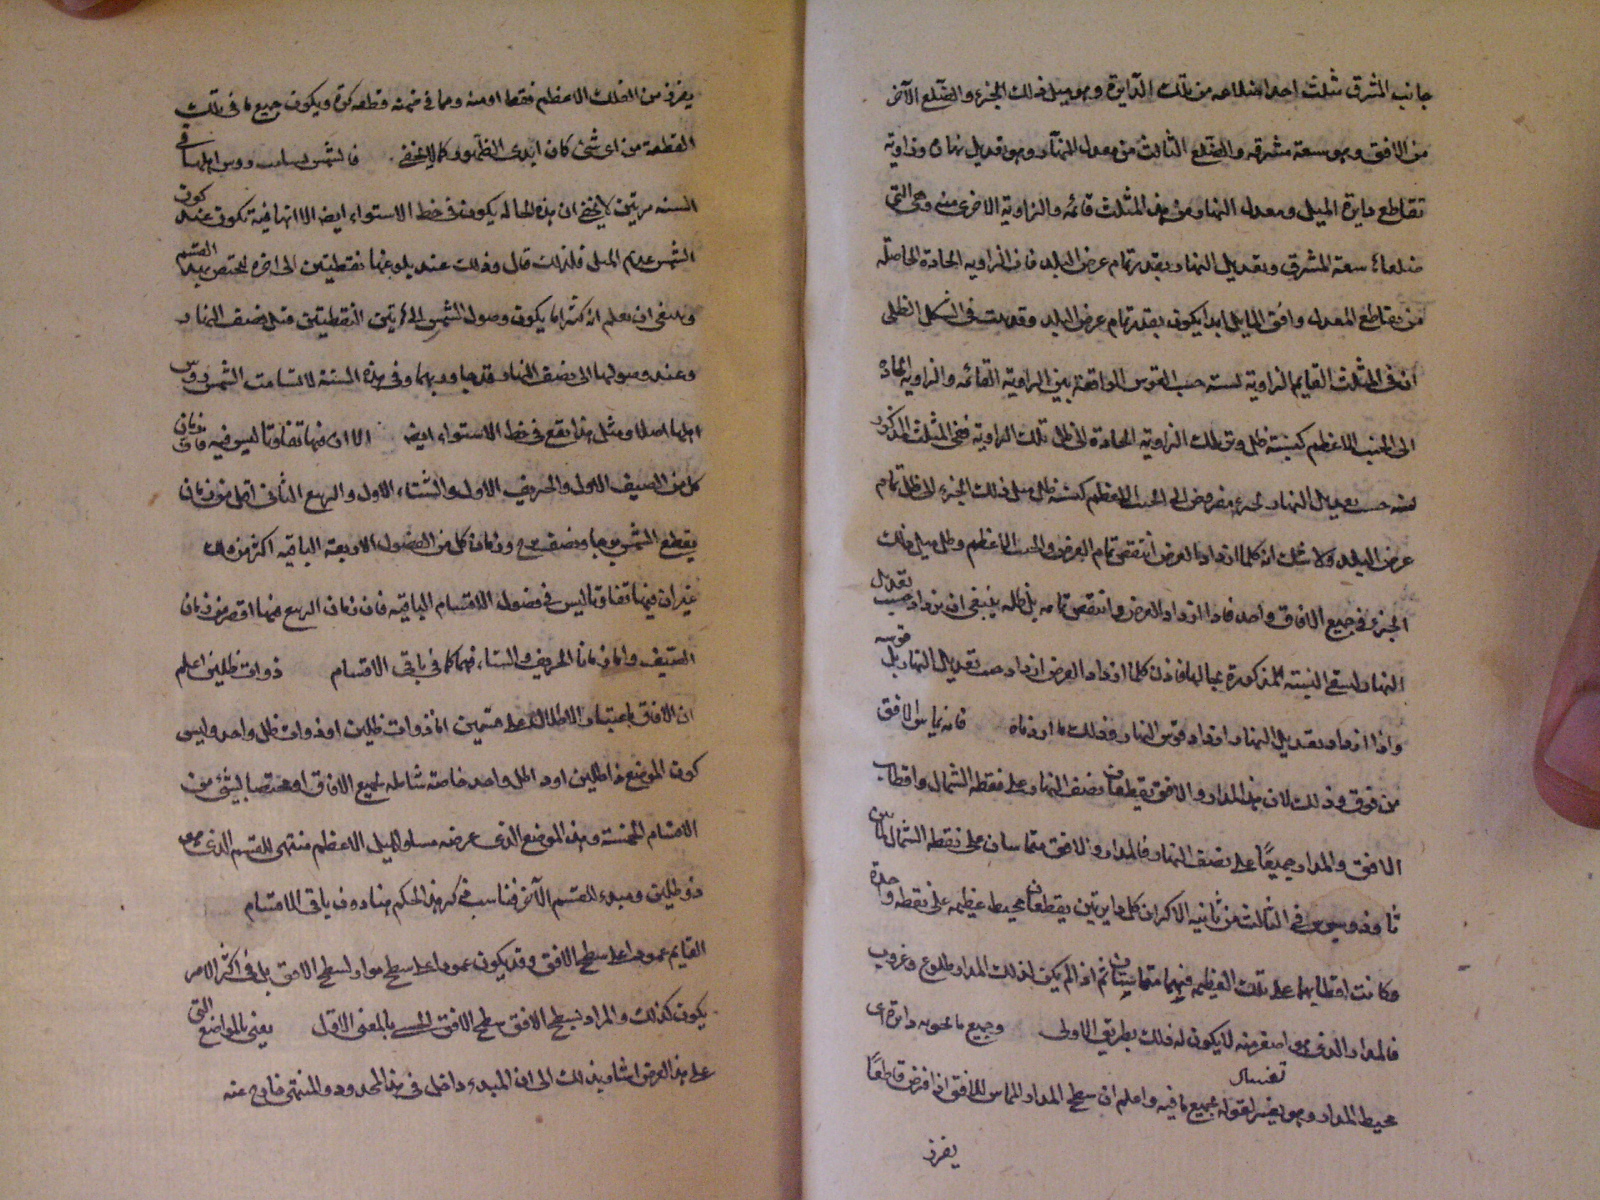 جانب المشرق مثلث احد اضلاعه من تلك الدايرة وهو ميل ذلك الجزء والضلع الآخر
من الافق وهو سعة مشرقه والضلع الثالث من معدل النهار وهو تعديل نهاره وزاوية
تقاطع دايرة الميل ومعدل النهار من هذا المثلث قائمة والزاوية الاخرى منه وهي التى
ضلعاها سعة المشرق وتعديل النهار بقدر تمام عرض البلد فان الزاوية الحادة الحاصلة
من تقاطع المعدل وافق المايل ابدا يكون بقدر تمام عرض البلد وقد ثبت فى الشكل الظلى
ان فى المثلث القايم الزاوية نسبة جيب القوس الواقعة بين الزاوية القائمة والزاوية الحادة
الى الجيب الاعظم كنسبة ظل وتر تلك الزاوية الحادة الى ظل تلك الزاوية ففى المثلث المذكور
نسبة جيب تعديل النهار لجزء مفروض الى الجيب الاعظم كنسبة ظل ميل ذلك الجزء الى ظل تمام
عرض البلد ولا شك انه كلما ازداد العرض انتقص تمام العرض والجيب الاعظم وظل ميل ذلك
الجزء فى جميع الافاق واحد فاذا ازداد العرض وانتقص تمامه بل ظله ينبغى ان يزداد جيب تعديل
النهار لتبقى النسبة المذكورة بحالها فاذن كلما ازداد العرض ازداد جيب تعديل النهار بل قوسه
واذا ازداد تعديل النهار ازداد قوس النهار وذلك ما اردناه فانه يماس الافق
من فوق وذلك لان هذا المدار والافق يقطعان نصف النهار على نقطة الشمال واقطاب
الافق والمدار جميعًا على نصف النهار فالمدار والافق متماسان على نقطة الشمال
ثاوذوسيوس فى الثالث من ثانية الاكر ان كل دايرتين يقطعان محيط عظيمة على نقطة واحدة
وكانت اقطابهما على تلك العظيمة فهما متماسان ثم اذا لم يكن لذلك المدار طلوع وغروب
فالمدار الذى هو اصغر منه لا يكون له ذلك بطريق الاولى وجميع ما تحويه دايرة اى
محيط المدار وهو تفسير لقوله بجميع ما فيه واعلم ان سطح المدار المماس للافق اذا فرض قاطعًا
يفرز
يفرز من الفلك الاعظم فقطعا منه ومما فى ضمنه قطعة كرة ويكون جميع ما فى تلك
القطعة من اى شئ كان ابدى الظهور كما لا يخفى. فالشمس تسامت رؤس اهلها فى
السنة مرتين لا يخفى ان هذه الحالة يكون فى خط الاستواء ايضا الا انها فيه تكون عند كون
الشمس عديم الميل فلذلك قال وذلك عند بلوغها نقطتين الى اخره ليختص بهذا القسم
وينبغى ان يعلم انه كثيرا ما يكون وصول الشمس الى تين النقطتين قبل نصف النهار
وعند وصولها الى نصف النهار قد جاوزتهما وفى هذه السنة لا تسامت الشمس رؤس
اهلها اصلا ومثل هذا يقع فى خط الاستواء ايضا الا ان فيها تفاوتا ليس فيه فان زمان
كل من الصيف الاول والخريف الاول والشتاء الاول والربيع الثانى اقل من زمان
يقطع الشمس برجا ونصف برج وزمان كل من الفصول الاربعة الباقية اكثر من ذلك
غير ان فيها تفاوتا ليس فى فصول الاقسام الباقية فان زمان الربيع فيها اقصر من زمان
الصيف واما زمانا الخريف والشتاء فهما كما فى باقى الاقسام ذوات ظلين اعلم
ان الافاق باعتبار الاظلال على قسمين اما ذوات ظلين او ذوات ظل واحد وليس
كون الموضع ذا ظلين او ذا ظل واحد خاصة شاملة لجميع الافاق او مختصا بشئ من
الاقسام الخمسة وهذا الموضع الذى عرضه مساو للميل الاعظم منتهى للقسم الذى هو
ذو ظلين ومبدء للقسم الآخر فناسب ذكر هذا الحكم هنا دون باقى الاقسام
القايم عمودا على سطح الافق وقد يكون عمودا على سطح مواز لسطح الافق بل فى اكثر الامر
يكون كذلك والمراد بسطح الافق سطح الافق الحسى بالمعنى الاول يعنى بالمواضع التى
على هذا العرض اشار بذلك الى ان المبدء داخل فى هذا المحدود والمنتهى خارج عنه